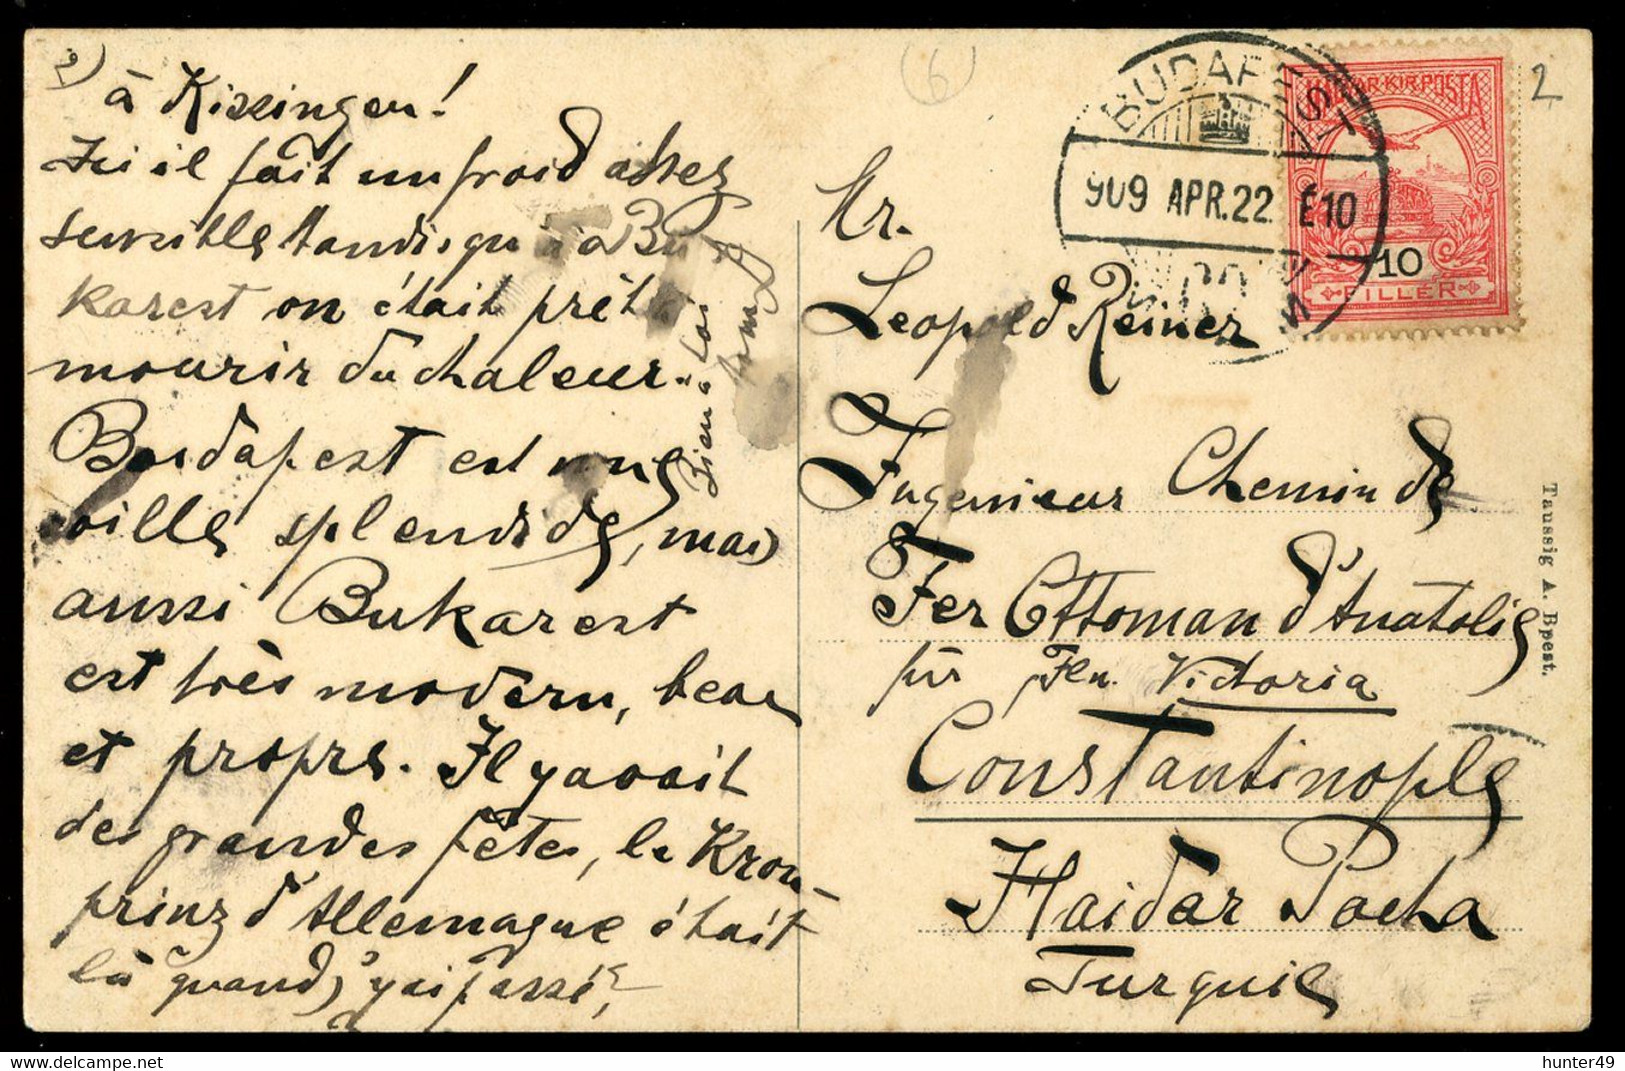 2)
à Kissingen!
Ici il fait un froid assez
sensible tandis qu'à Bu
karest on était prêt à
mourir du chaleur.
Budapest est une
ville splendide, mais
aussi Bukarest
est très modern, beau
et propre. Il y avait
des grandes fêtes, le Kron-
prinz d'Allemagne était
là quand j'y ai passé,
Bien à toi
(6)
2
BUDAPEST
909 APR. 22 E10
MAGYAR·KIR·POSTA
10
FILLÉR
Mr.
Leopold Reiner
Ingenieur Chemin de
Fer Ottoman d'Anatolie
für Fln. Victoria
Constantinople
Haidar Pacha
Turquie
Taussig A. Bpest.
hunter49